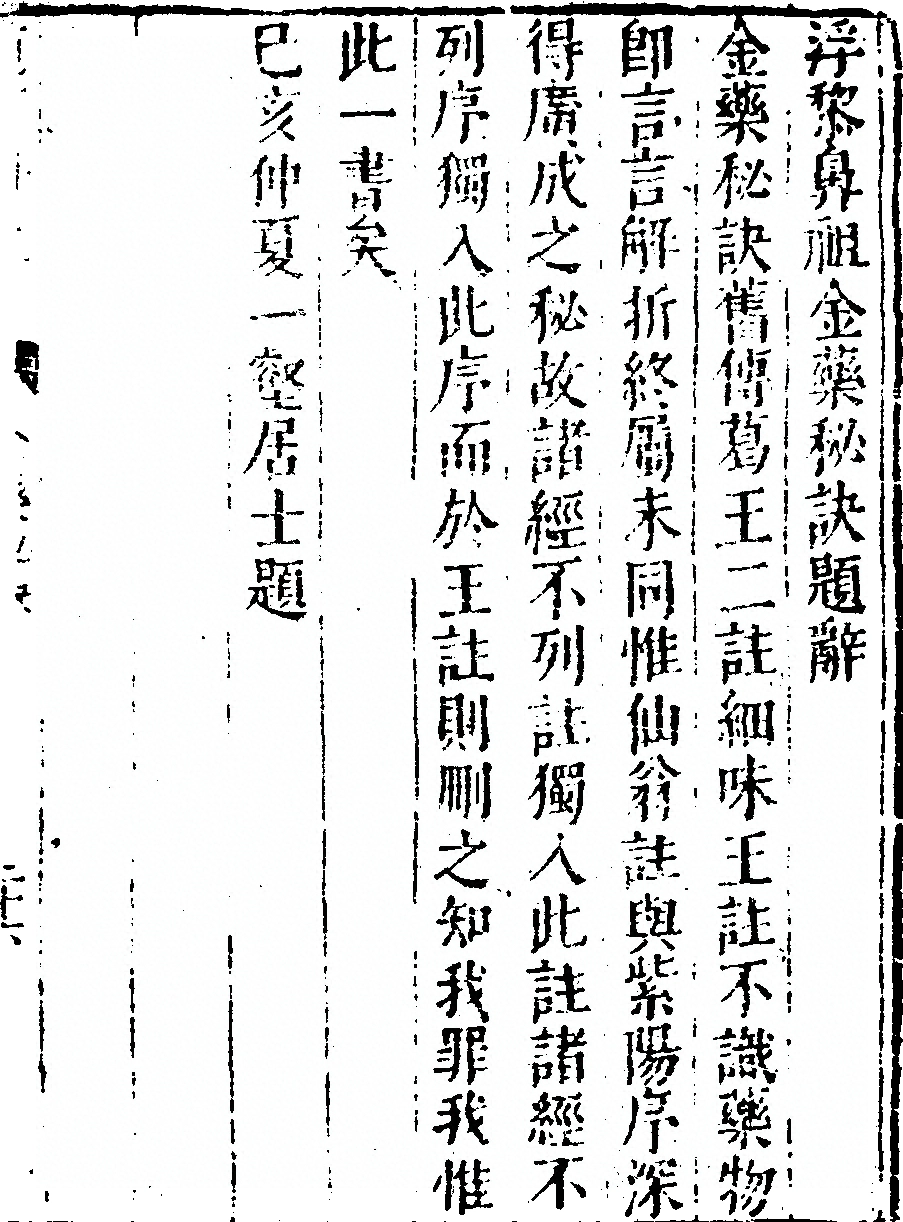 浮黎鼻祖金藥秘訣題辭
金藥秘訣舊傳葛王二註細味王註不識藥物
卽言言解折終屬未同惟仙翁註與紫陽序深
得廣成之秘故諸經不列註獨入此註諸經不
列序獨入此序而於王註則刪之知我罪我惟
此一書矣
己亥仲夏一壑居士題